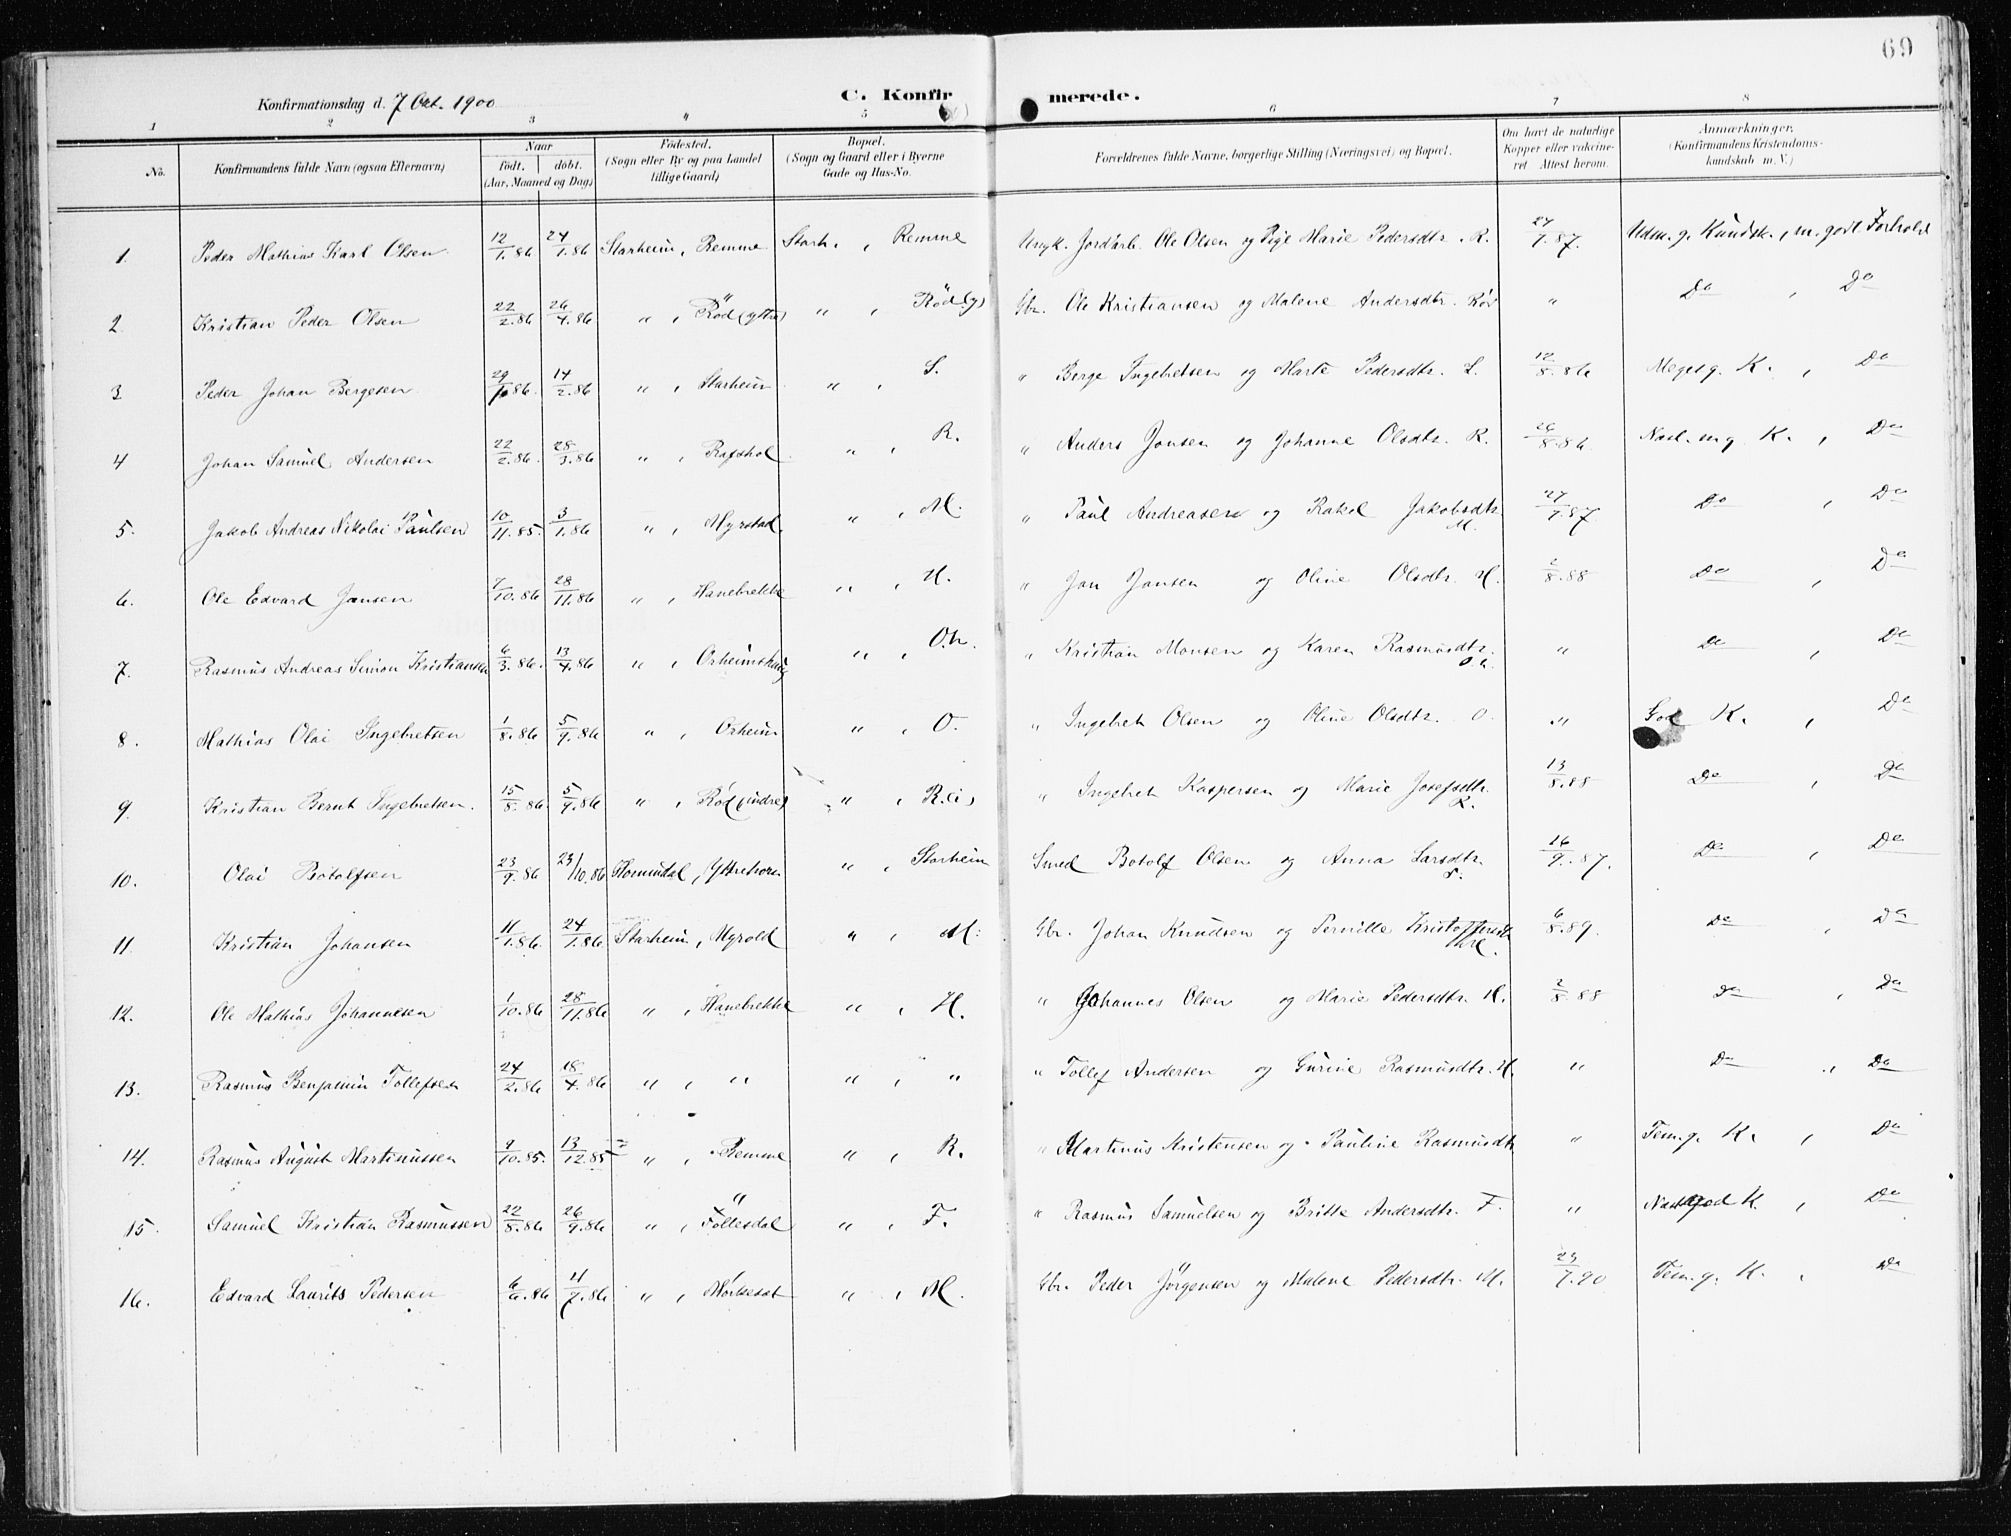 69
Konfirmationsdag d. 7 Okt. 1900 C. Konfirmerede.
1 2 3 4 5 6 7 8
No. Konfirmandens fulde Navn (ogsaa Efternavn) Naar født. døbt. (Aar, Maaned og Dag) Fødested. (Sogn eller By og paa Landet tillige Gaard) Bopæl. (Sogn og Gaard eller i Byerne Gade og Hus-No. Forældrenes fulde Navne, borgerlige Stilling (Næringsvei) og Bopæl. Om havt de naturlige Kopper eller vakcineret Attest herom. Anmærkninger. (Konfirmandens Kristendomskundskab m. V.)
1. Peder Mathias Karl Olsen 12/1.86 24/1.86 Starheim, Remme Starh., Remme Ungk. Jordarb. Ole Olsen og Pige Marie Pedersdtr. R. 27/7.87. Udm. g. Kundsk., m. godt Forhold
2. Kristian Peder Olsen 22/2.86 26/4.86 " , Röd (yttre) " , Röd (y) Gbr. Ole Kristiansen og Malene Andersdtr. Röd " Do , Do
3 Peder Johan Bergesen 29/1.86 14/2.86 " , Starheim " , S. " Berge Ingebretsen og Marte Pedersdtr. S. 12/8.86 Meget g. K. , Do
4 Johan Samuel Andersen 22/2.86. 28/3.86 " , Rafshol " , R. " Anders Jonsen og Johanne Olsdtr. R. 26/8.86 Næst. m g. K. , Do
5. Jakob Andreas Nikolai Paulsen 10/11.85. 3/1.86 " , Myrstad " , M. " Paul Andreasen og Rakel Jakobsdtr. M. 27/7.87. Do , Do
6. Ole Edvard Jansen 7/10.86 28/11.86 " , Hanebrekke " , H. " Jan Jansen og Oline Olsdtr. H. 2/8.88 Do , Do
7. Rasmus Andreas Simon Kristiansen 6/3.86. 13/4.86 " , Orheimshaug " , O.h. " Kristian Monsen og Karen Rasmusdtr. O.h. " Do , Do
8. Mathias Olai Ingebretsen 1/8.86 5/9.86 " , Orheim " , O. " Ingebret Olsen og Oline Olsdtr. O. " God K. , Do
9. Kristian Bernt Ingebretsen. 15/8.86 5/9.86 " , Röd (indre) " , R. (i) " Ingebret Kaspersen og Marie Josefsdtr. R. 13/8.88 Do , Do
10. Olai Botolfsen 23/9.86 23/10.86 Hornindal, Yttrehorn " , Starheim Smed Botolf Olsen og Anna Larsdtr. S. 16/9.87. Do , Do
11. Kristian Johansen 11/1.86. 24/1.86 Starheim, Myrold " , M. Gbr. Johan Knudsen og Pernille Kristoffersdtr. 6/8.89. Do , Do
12. Ole Mathias Johannesen 1/10.86 28/11.86 " , Hanebrekke " , H. " Johannes Olsen og Marie Pedersdtr. H. 2/8.88 Do , Do
13. Rasmus Benjamin Tollefsen 24/2.86 18/4.86 " , " " , " " Tollef Andersen og Gurine Rasmusdtr. H. " Do , Do
14. Rasmus August Martinussen 9/10.85. 13/12.85 " , Remme " , R. " Martinus Kristensen og Pauline Rasmusdtr " Tem. g. K. , Do
15. Samuel Kristian Rasmussen 22/8.86 26/9.86 " , Föllesdal " , F. " Rasmus Samuelsen og Britte Andersdtr. F. " god K. , Do
16. Edvard Laurits Pedersen 6/6.86 11/7.86 " , Mörkesat " , M. Gbr. Peder Jörgensen og Malene Pedersdtr. M. 23/7.90 Tem. g. K. , Do